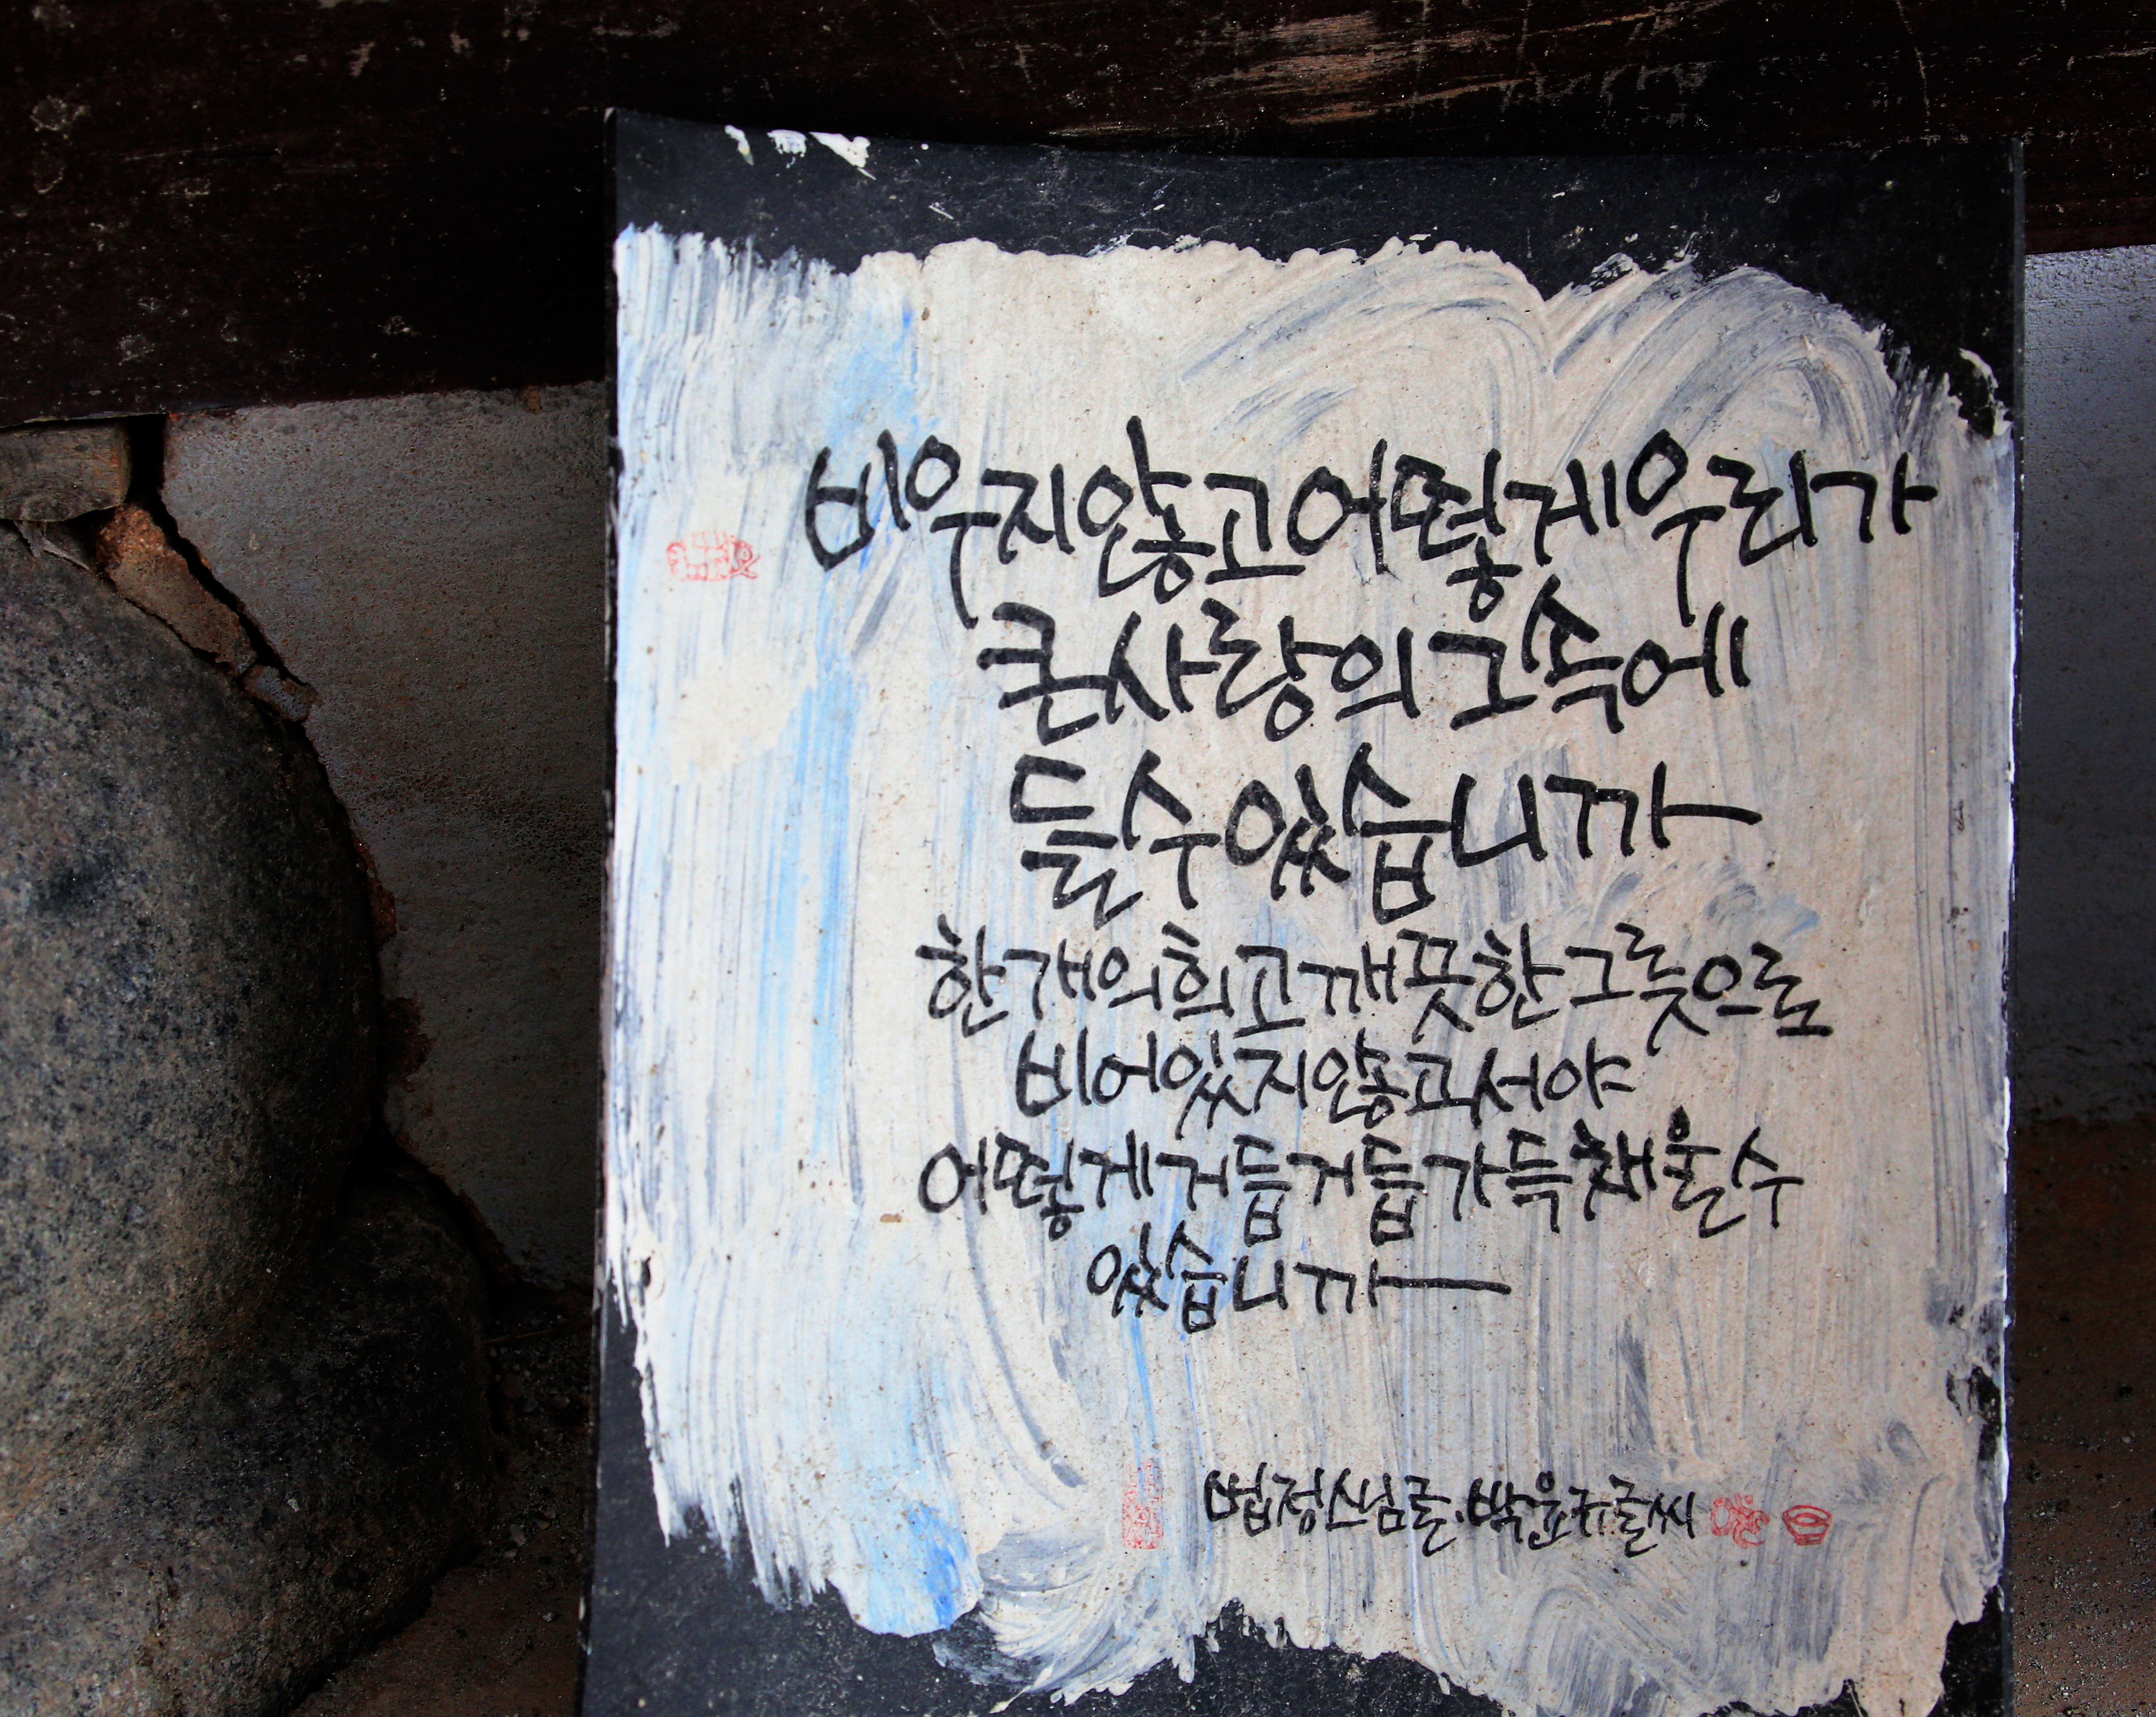 비우지않고어떻게우리가
큰사랑의그속에
들수있습니까
한개의희고깨끗한그릇으로
비어있지않고서야
어떻게거듭거듭가득채울수
있습니까
법정스님글.박윤규글씨